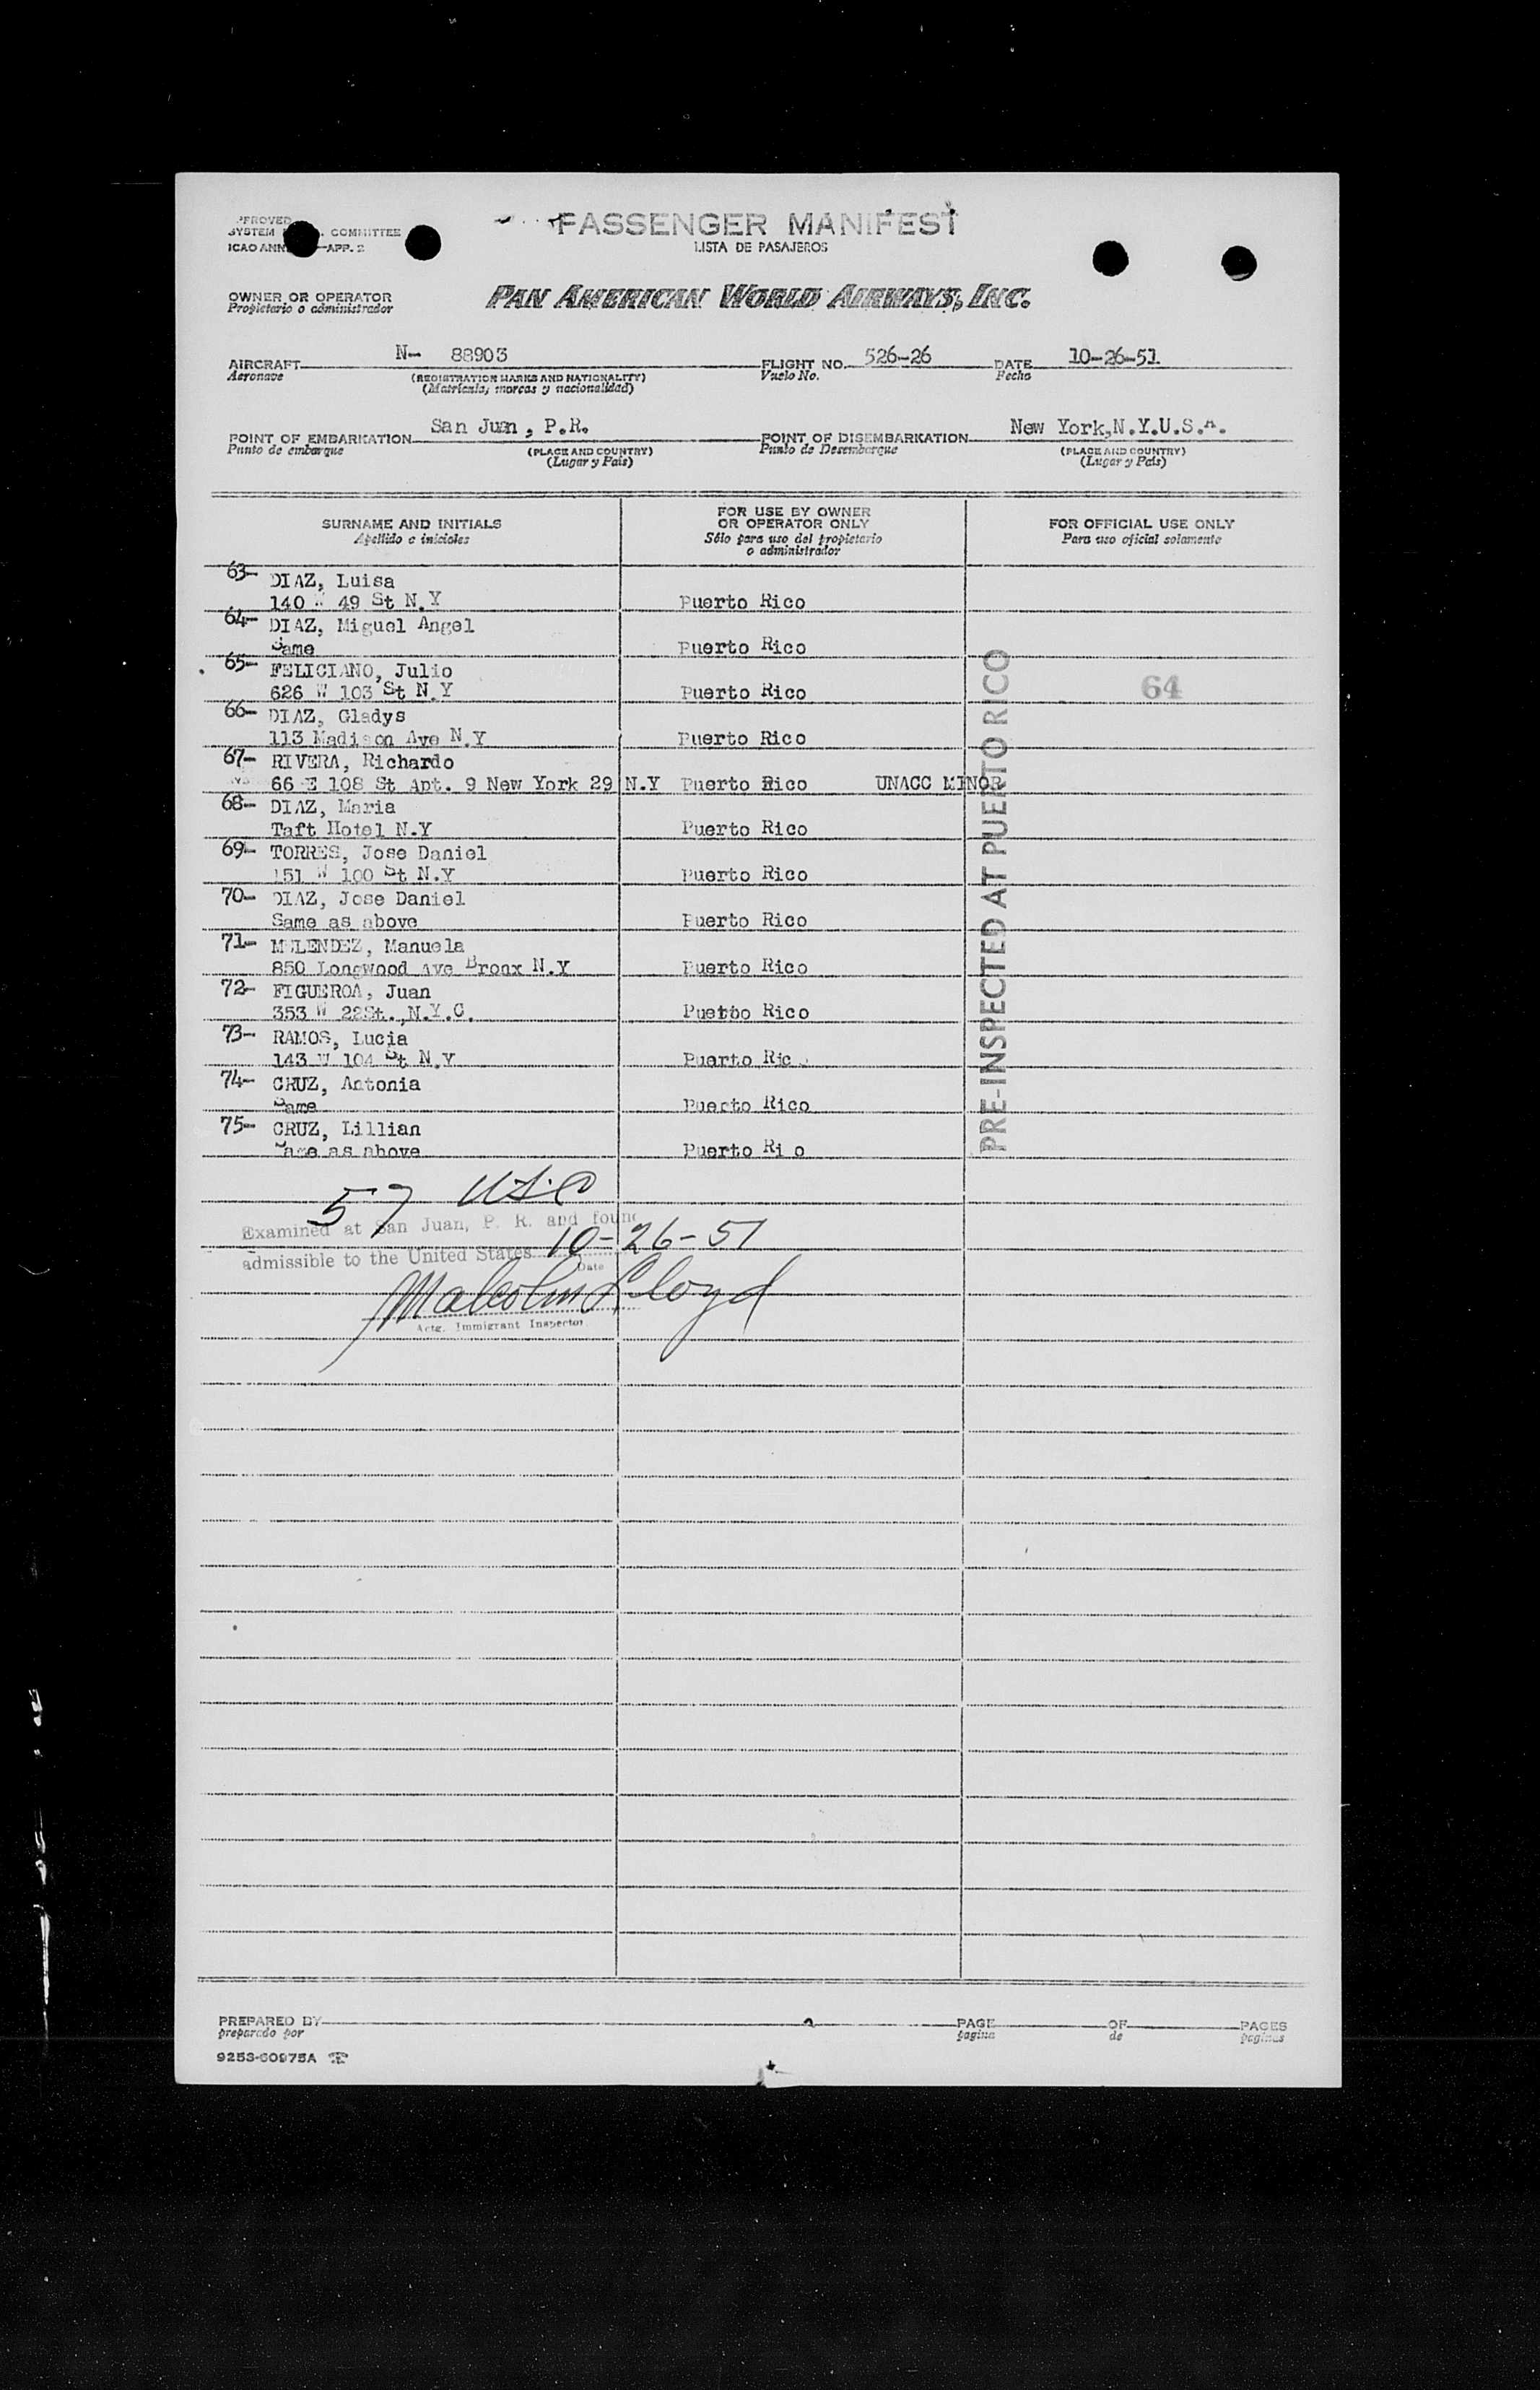 PASSENGER MANIFEST
LISTA DE PASAJEROS
SYSTEM COMMITTEE
ICAO APP. 2
OWNER OR OPERATOR
Propietario o administrador
PAN AMERICAN WORLD AIRWAYS, INC.
AIRCRAFT N- 88903 FLIGHT NO. 526-26 DATE 10-26-51
Aeronave (REGISTRATION MARKS AND NATIONALITY) Vuelo No. Fecha
(Matrícula, marcas y nacionalidad)
POINT OF EMBARKATION San Juan, P.R. POINT OF DISEMBARKATION New York,N.Y.U.S.A.
Punto de embarque (PLACE AND COUNTRY) Punto de Desembarque (PLACE AND COUNTRY)
(Lugar y País) (Lugar y País)
SURNAME AND INITIALS FOR USE BY OWNER OR OPERATOR ONLY FOR OFFICIAL USE ONLY
Apellido e iniciales Sólo para uso del propietario o administrador Para uso oficial solamente
63- DIAZ, Luisa
140 W 49 St N.Y Puerto Rico
64- DIAZ, Miguel Angel
Same Puerto Rico
65- FELICIANO, Julio
626 W 103 St N.Y Puerto Rico 64
66- DIAZ, Gladys
113 Madison Ave N.Y Puerto Rico
67- RIVERA, Richardo
66 E 108 St Apt. 9 New York 29 N.Y Puerto Rico UNACC MINOR
68- DIAZ, Maria
Taft Hotel N.Y Puerto Rico
69- TORRES, Jose Daniel
151 W 100 St N.Y Puerto Rico
70- DIAZ, Jose Daniel
Same as above Puerto Rico
71- MELENDEZ, Manuela
850 Longwood Ave Bronx N.Y Puerto Rico
72- FIGUEROA, Juan
353 W 22St.,N.Y.C. Puerto Rico
73- RAMOS, Lucia
143 W 104 St N.Y Puerto Ric
74- CRUZ, Antonia
Same Puerto Rico
75- CRUZ, Lillian
Same as above Puerto Ri o
PRE-INSPECTED AT PUERTO RICO
57 USC
Examined at San Juan, P. R. and found
admissible to the United States 10-26-51
Date
Malcolm Lloyd
Actg. Immigrant Inspector
PREPARED BY PAGE OF PAGES
preparado por pagina de paginas
9253-60975A